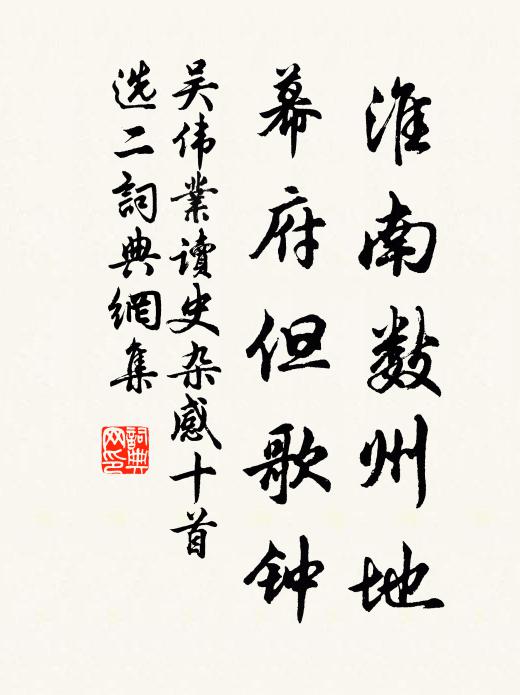 淮南数州地
幕府但歌钟
吴伟業讀史杂感十首
选二詞典網集
詞典网印